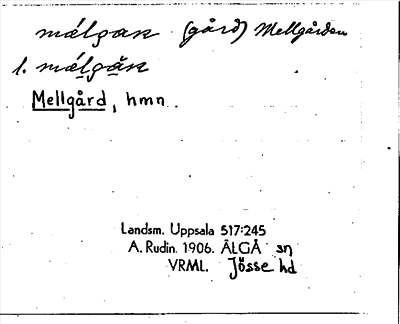 målgan (gård) Mellgården
l. målgån
Mellgård, hmn.
Landsm. Uppsala 517:245
A. Rudin. 1906. ÄLGÅ sn
VRML. Jösse hd